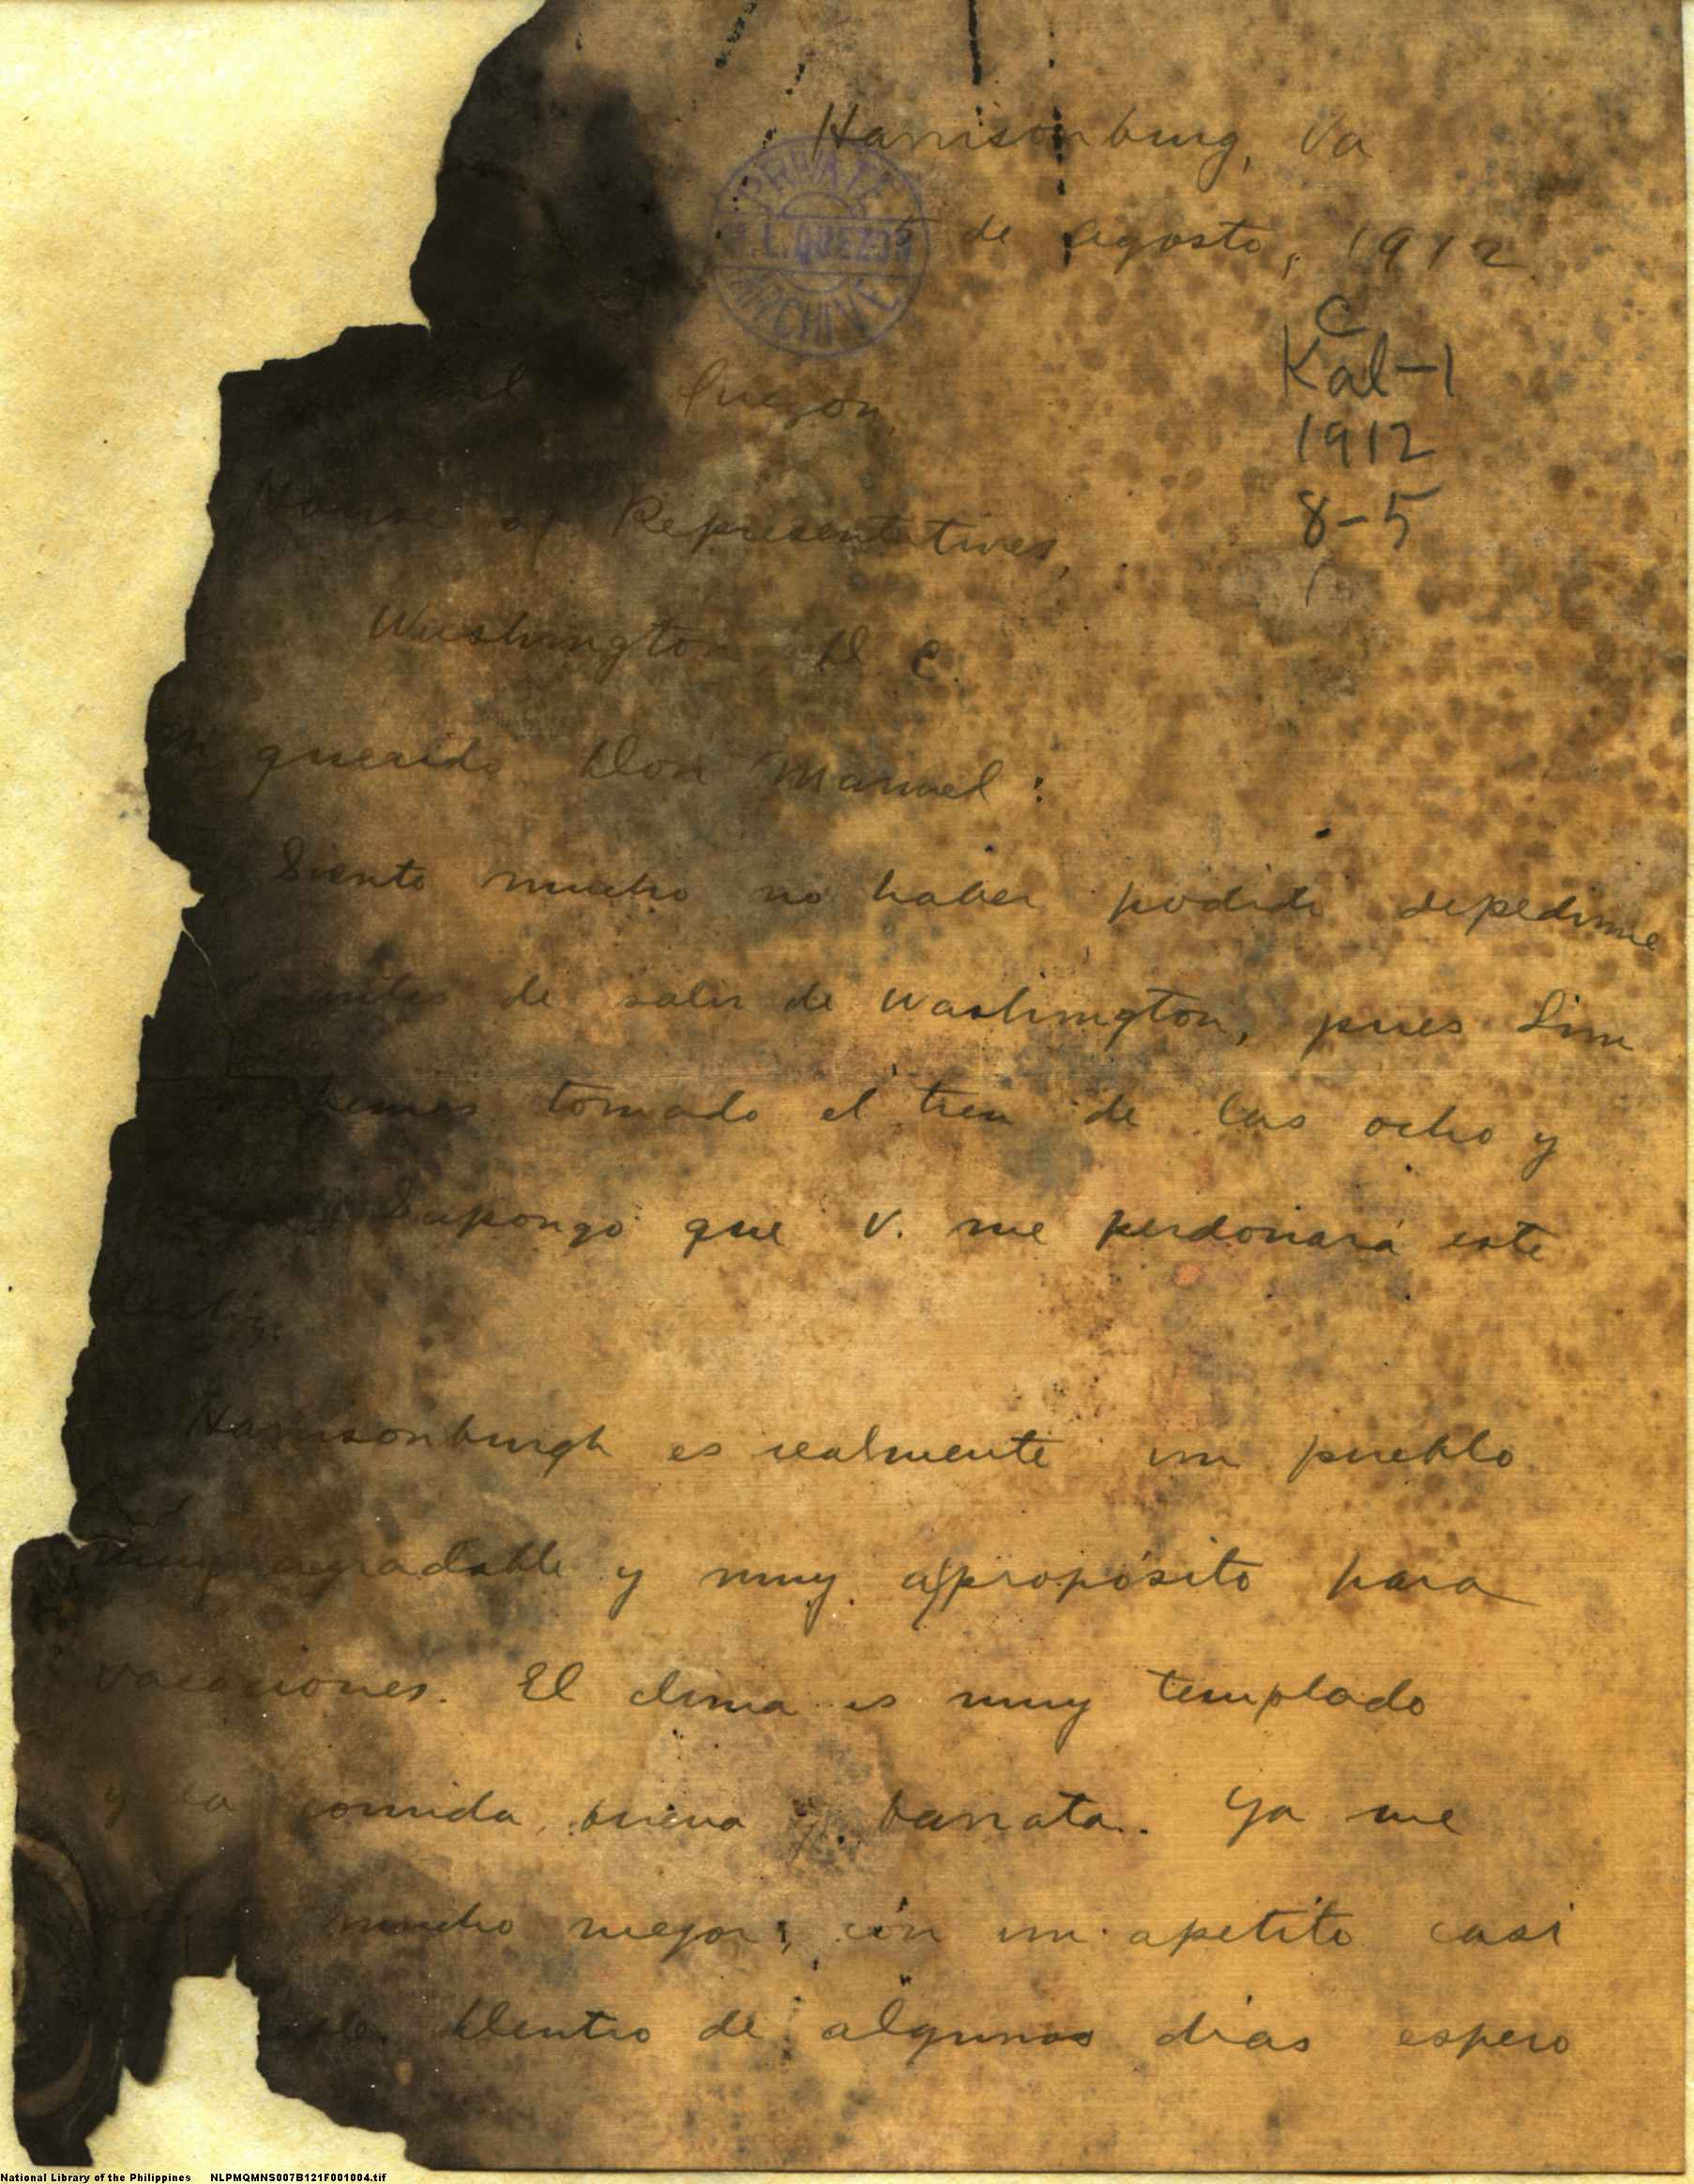 Harrisonburg, Va
5 de agosto, 1912
PRIVATE
M.L. QUEZON
ARCHIVE
C
Kal-1
1912
8-5
1
Quezon,
House of Representatives,
Washington D C.
Mi querido Don Manuel:
Siento mucho no haber podido depedirme
antes de salir de Washington, pues Lim
hemos tomado el tren de las ocho y
Supongo que V. me perdonará este
desliz.
Harrisonburgh es realmente un pueblo
muy agradable y muy apropósito para
vacaciones. El clima es muy templado
y la comida, buena y barata. Ya me
mucho mejor, con un apetito casi
Dentro de algunos dias espero
National Library of the Philippines NLPMQMNS007B121F001004.tif